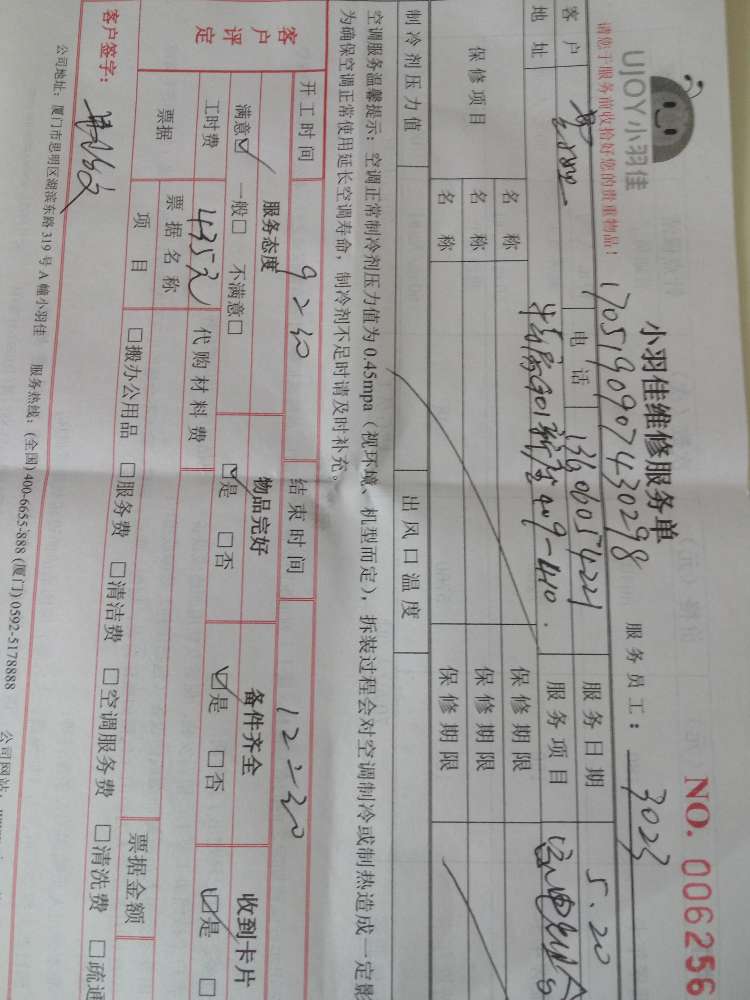 UJOY小羽佳
小羽佳维修服务单
NO. 006256
请您于服务前收拾好您的贵重物品！
1705190907430298
服务员工：3023
客户
电话
13606054221
服务日期
5.20
地址
409-410.
服务项目
保修项目
名称
保修期限
名称
保修期限
名称
保修期限
制冷剂压力值
出风口温度
空调服务温馨提示：空调正常制冷剂压力值为 0.45mpa（视环境、机型而定），拆装过程会对空调制冷或制热造成一定影
为确保空调正常使用延长空调寿命，制冷剂不足时请及时补充。
开工时间 9:30 结束时间 12:30
客户评定
服务态度 物品完好 备件齐全 收到卡片
满意☑ 一般□ 不满意□ ☑是 □否 ☑是 □否 ☑是 □
工时费 435元 代购材料费
票据 票据名称 票据金额
项目 □搬办公用品 □服务费 □清洁费 □空调服务费 □清洗费 □疏通
客户签字：
公司地址：厦门市思明区湖滨东路 319 号 A 幢小羽佳 服务热线：(全国)400-6655-888 (厦门)0592-5178888 公司网站：